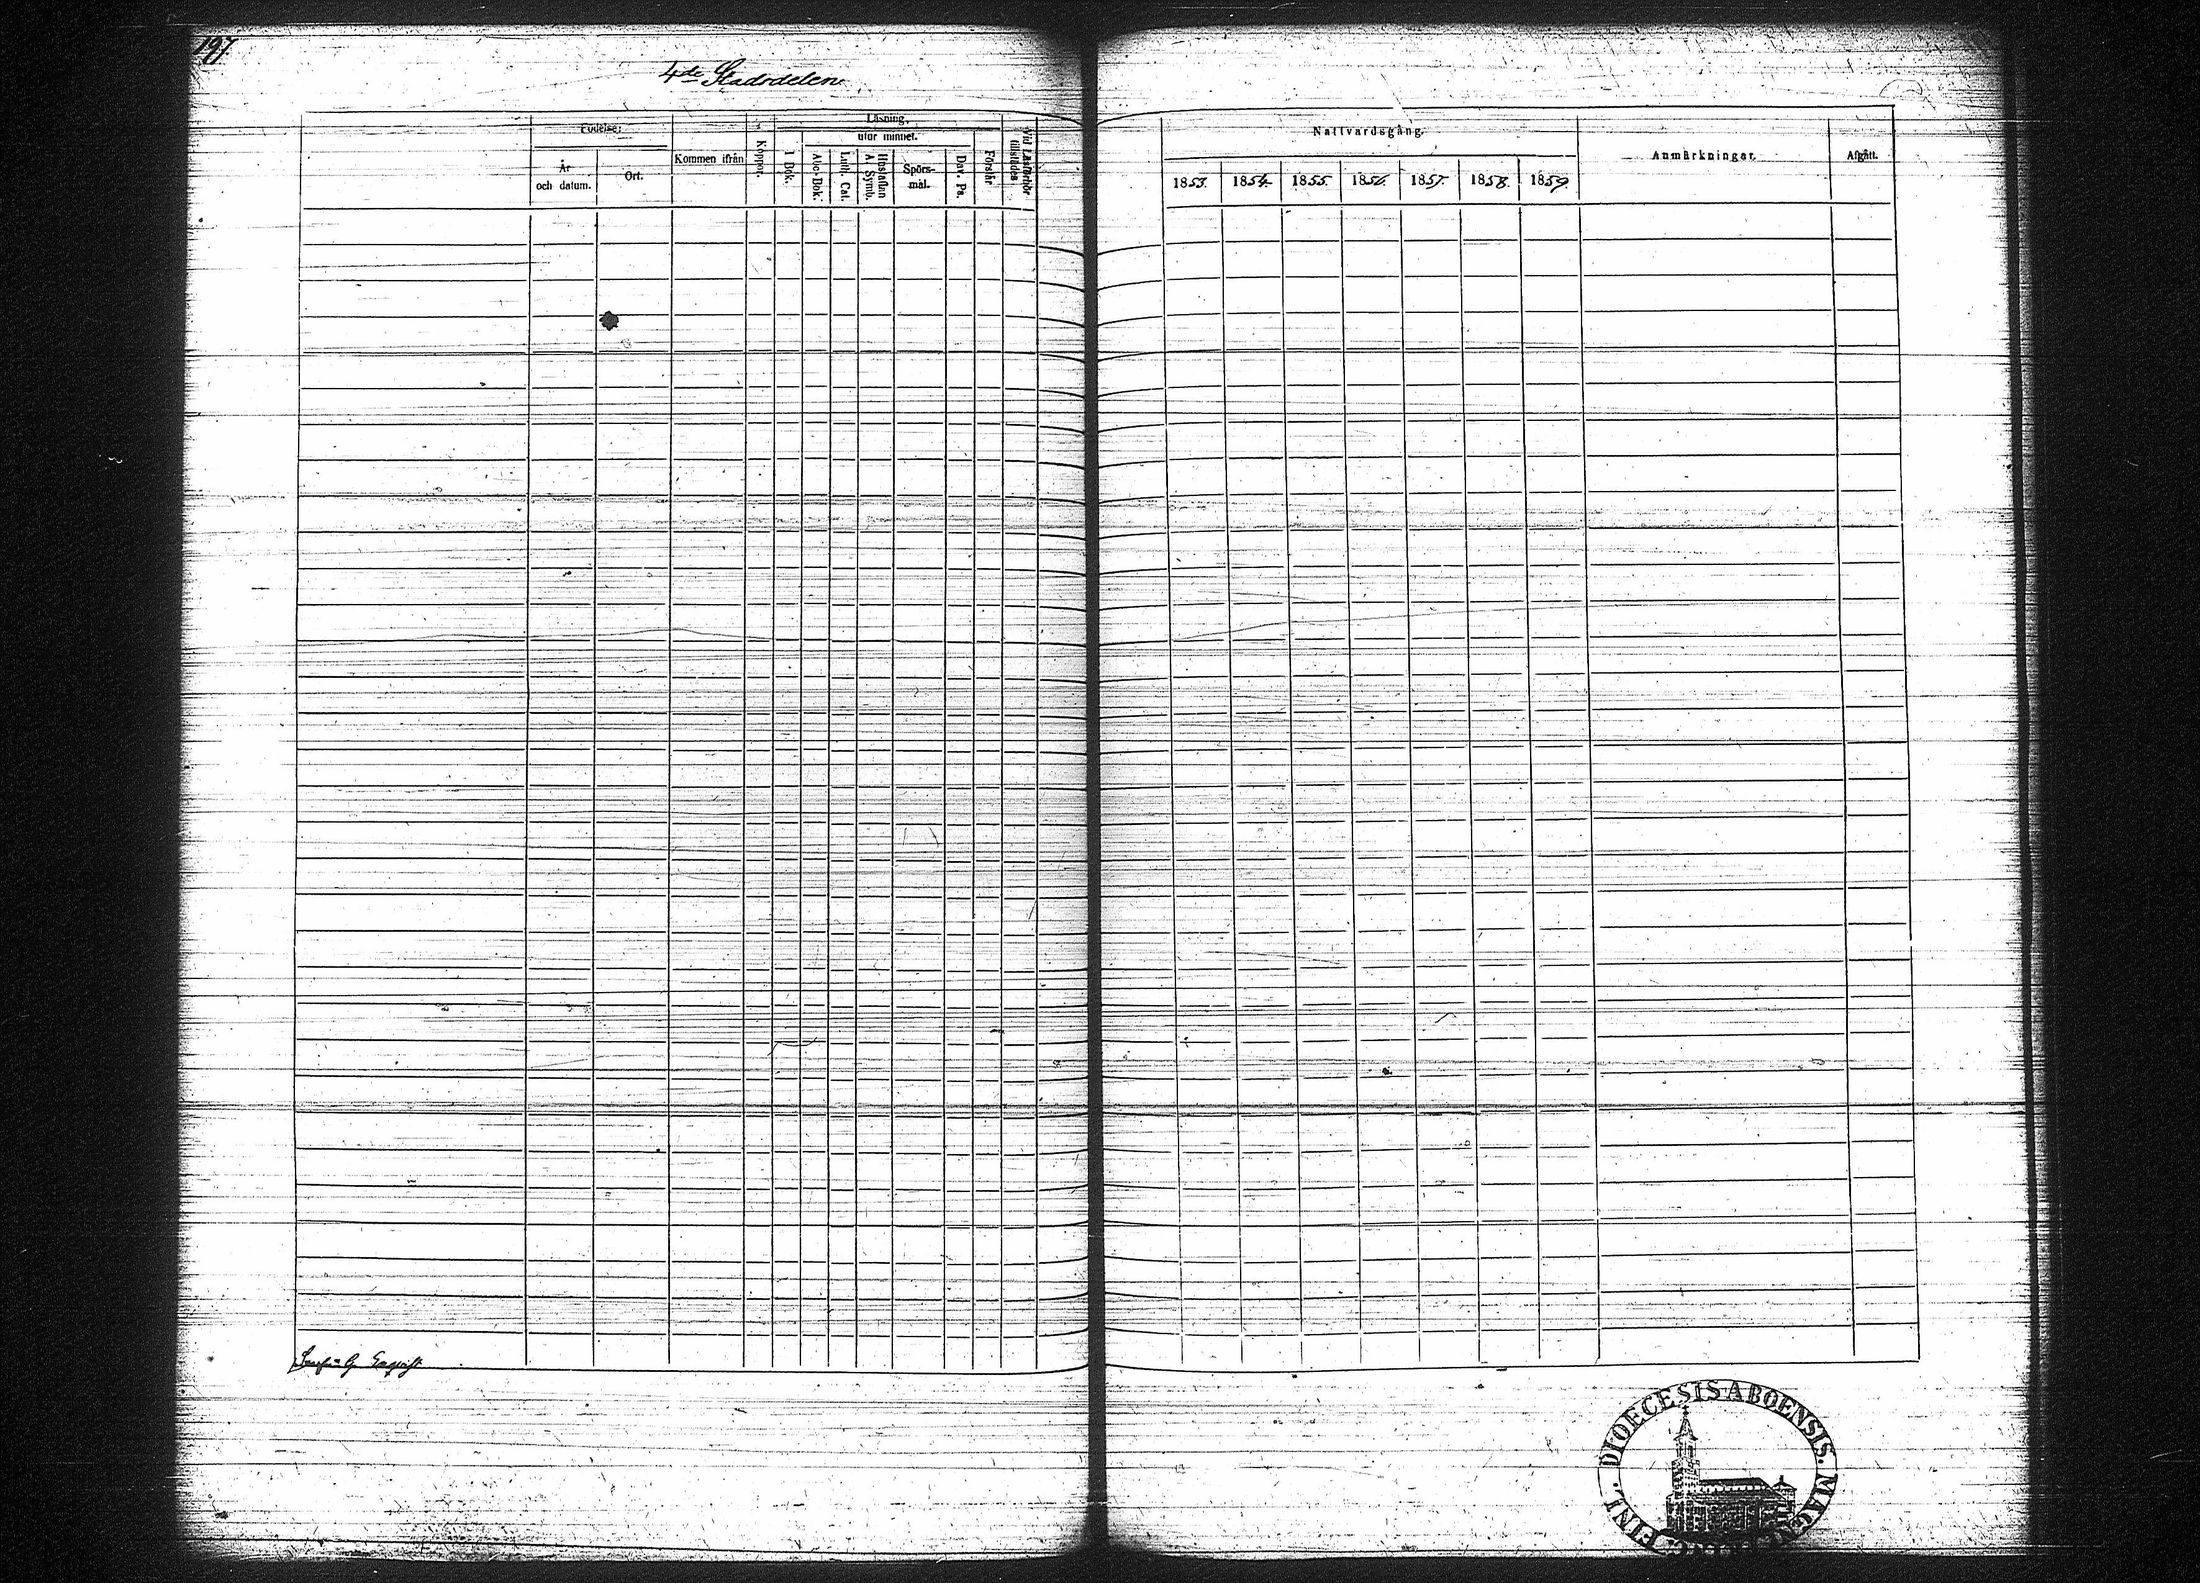 197.
4de Stadsdelen
Födelse:
År
och datum.
Ort.
Kommen ifrån
Koppor.
Läsning,
I Bok.
utur minnet.
Abc-Bok.
Luth. Cat.
Hustaflan
A Symb.
Spörs-
mål.
Dav. Ps.
Förstår
Vid Läsförhör
tillstädes
Nattvardsgång.
1853. 1854. 1855. 1856. 1857. 1858. 1859.
Anmärkningar.
Afgått.
DIOECESIS ABOENSIS. MAGN.
FINL.